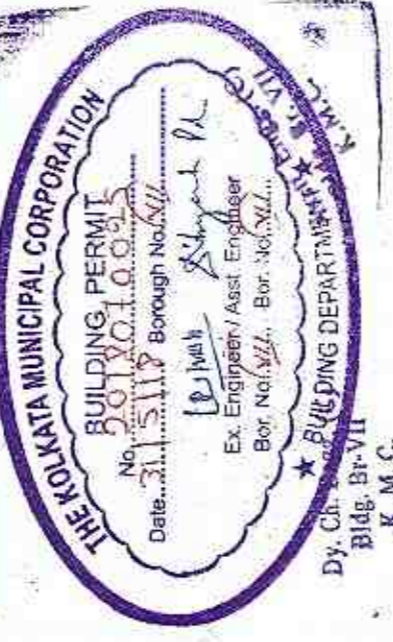 THE KOLKATA MUNICIPAL CORPORATION
BUILDING PERMIT
No. 2018070025
Date 31/5/18 Borough No. VII
Ex. Engineer / Asst. Engineer
Bor. No. VII Bor. No. VII
★ BUILDING DEPARTMENT ★
Engr (C)
Br. VII
K.M.C.
Dy. Ch.
Bldg. Br-VII
K. M. C.